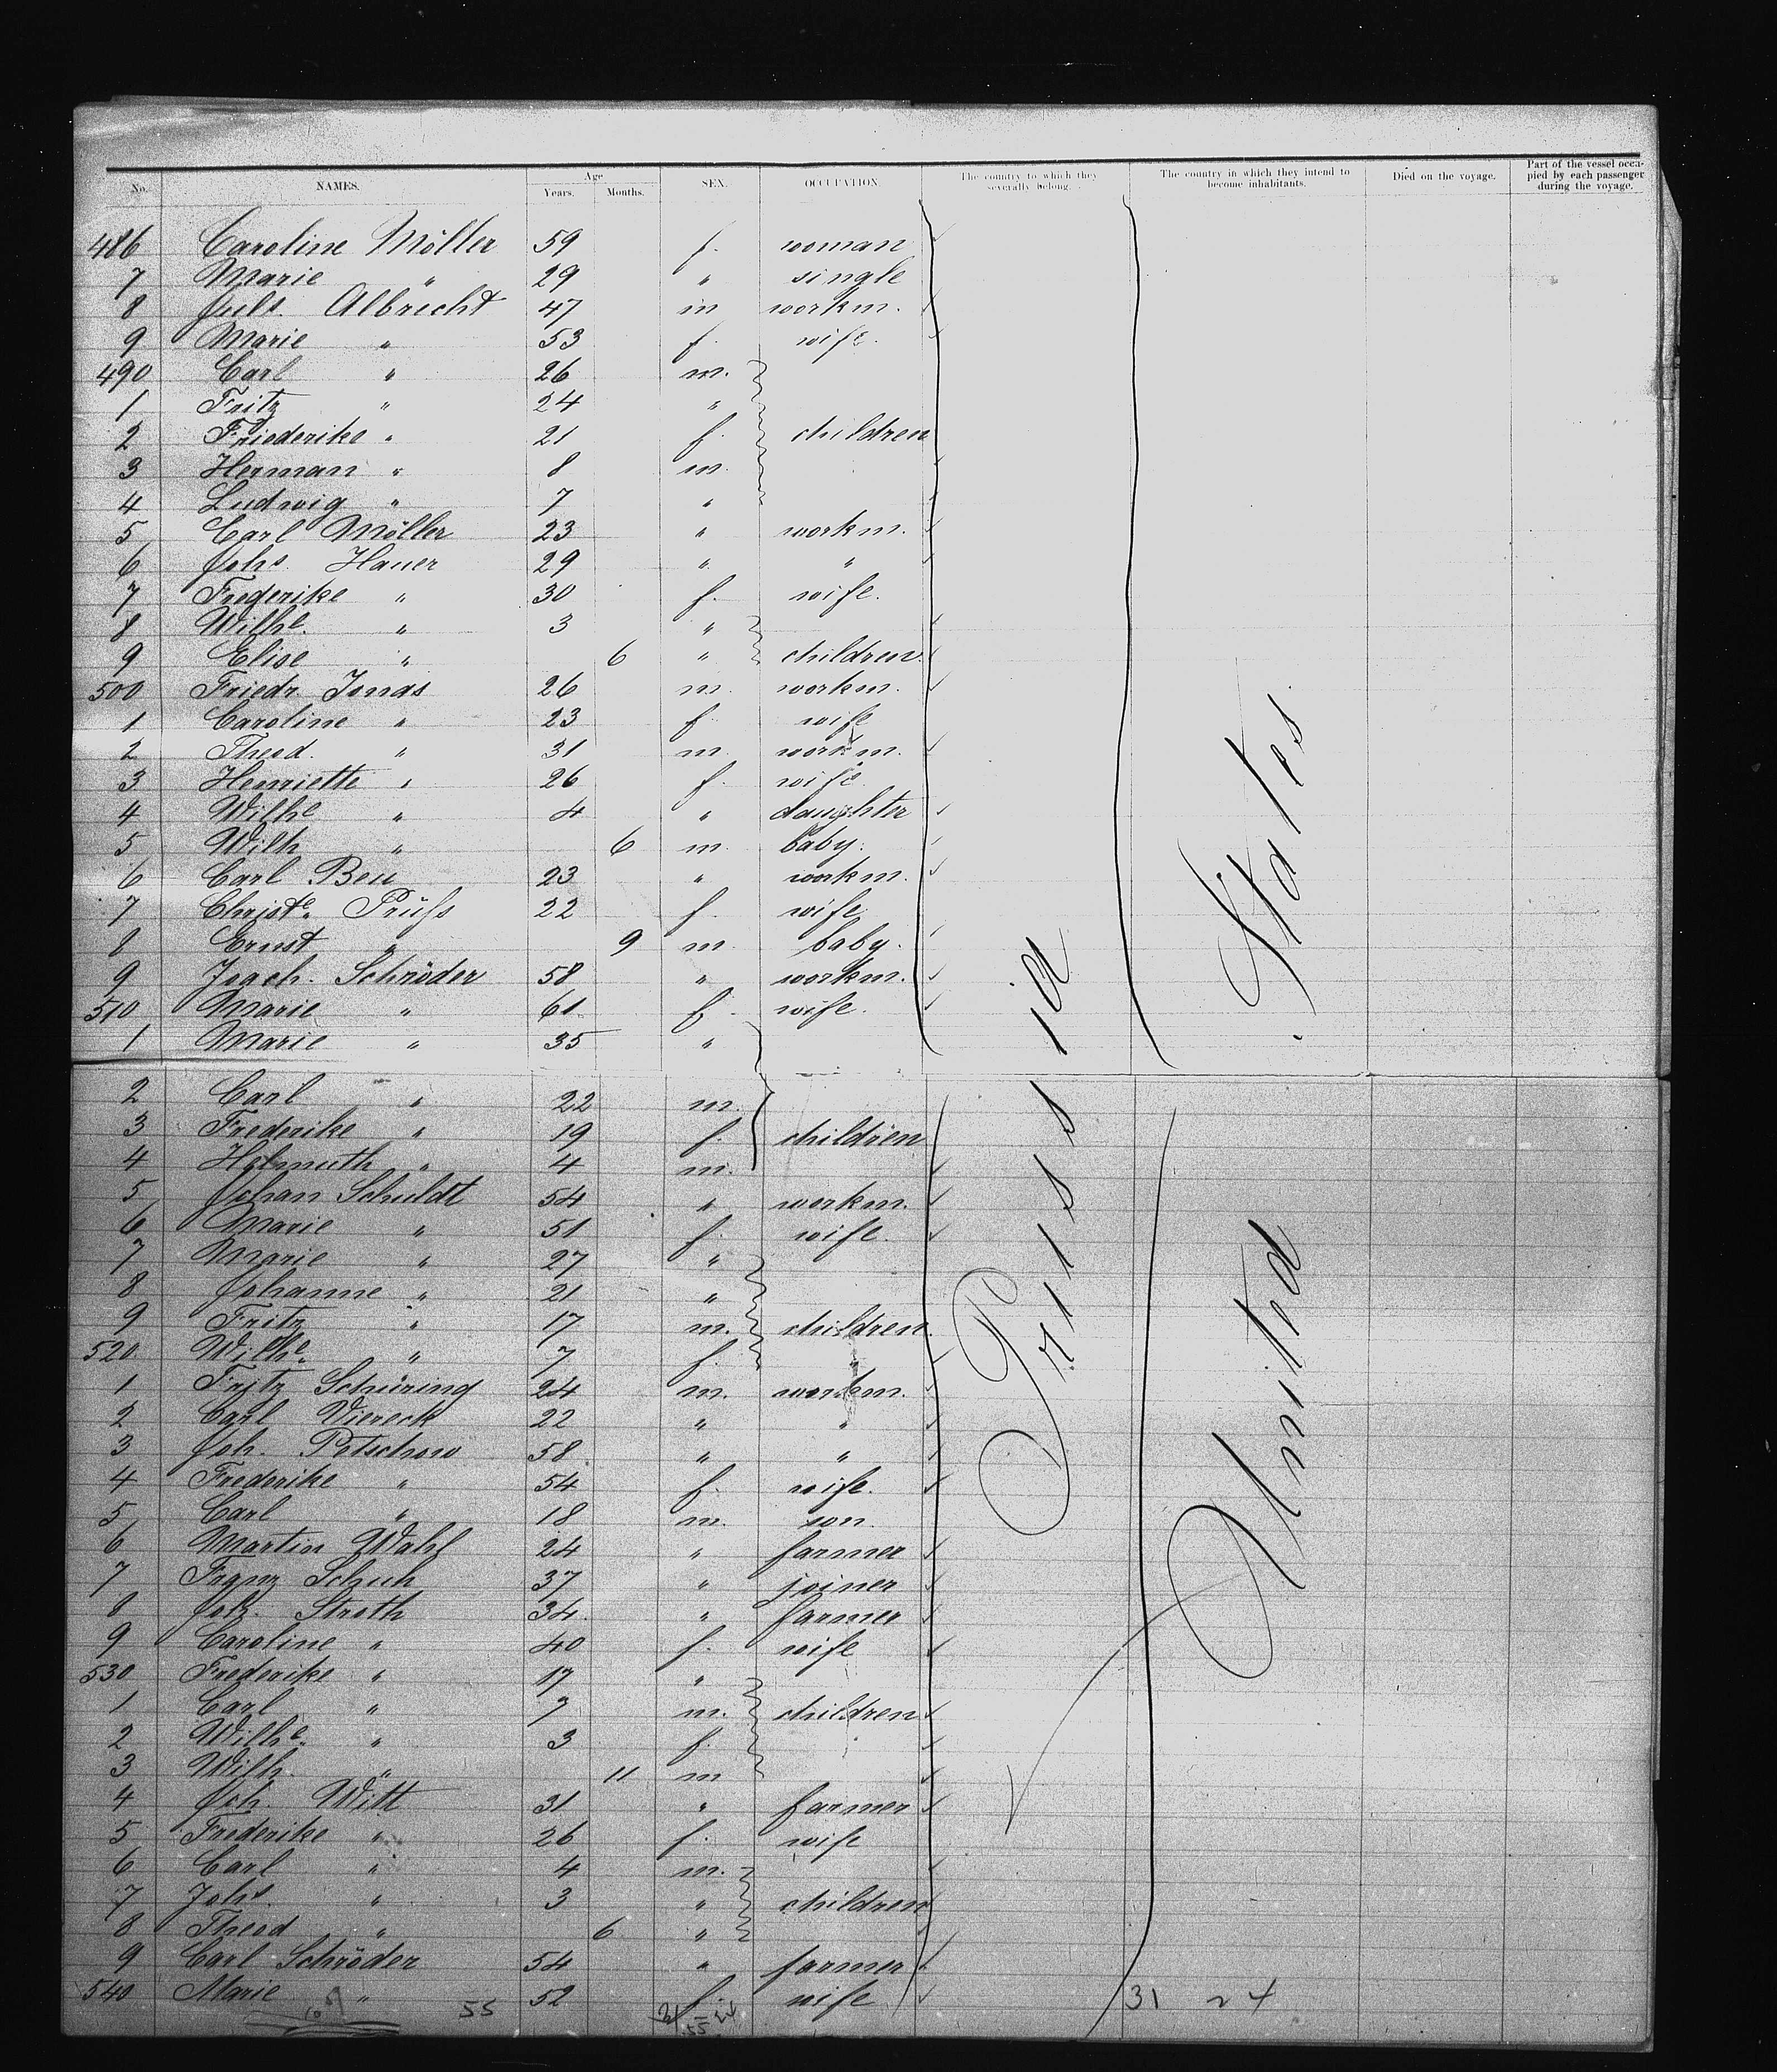 No. NAMES. Age Years. Months. SEX. OCCUPATION The country to which they severally belong. The country in which they intend to become inhabitants. Died on the voyage. Part of the vessel occupied by each passenger during the voyage.
486 Caroline Möller 59 f. woman
7 Marie " 29 " single
8 Juls. Albrecht 47 m workm.
9 Marie " 53 f. wife.
490 Carl " 26 m.
1 Fritz " 24 "
2 Friederike " 21 f. children
3 Herman " 8 m.
4 Ludwig " 7 "
5 Carl Möller 23 " workm.
6 Johs. Hauer 29 " "
7 Frederike " 30 f. wife.
8 Wilhe. " 3 "
9 Elise " 6 " children.
500 Friedr. Jonas 26 m. workm.
1 Caroline " 23 f. wife
2 Theod. " 31 m. workm.
3 Henriette " 26 f. wife
4 Wilhe " 4 " daughter
5 Wilh " 6 m. baby.
6 Carl Beu 23 " workm.
7 Christe. Prüfs 22 f. wife
8 Ernst " 9 m baby.
9 Joach. Schröder 58 " workm.
510 Marie " 61 f. wife.
1 Marie " 35 "
2 Carl " 22 m.
3 Frederike " 19 f. children
4 Helmuth " 4 m.
5 Johan Schuldt 54 " workm.
6 Marie " 51 f. wife.
7 Marie " 27 "
8 Johanne " 21 "
9 Fritz " 17 m. children.
520 Wilhe. " 7 f. "
1 Fritz Schüring 24 m. workm.
2 Carl Viereck 22 " "
3 Joh. Petschow 58 " "
4 Frederike " 54 f. wife.
5 Carl " 18 m. son.
6 Martin Wahl 24 " farmer
7 Franz Schuh 37 " joiner
8 Joh. Stroth 34 " farmer
9 Caroline " 40 f. wife
530 Frederike " 17 "
1 Carl " 7 m. children
2 Wilhe. " 3 f.
3 Wilh. " 11 m
4 Joh. Witt 31 " farmer
5 Frederike " 26 f. wife
6 Carl " 4 m.
7 Johs. " 3 " children
8 Theod " 6 "
9 Carl Schröder 54 " farmer
540 Marie " 52 f. wife
Prussia
United States.
55
31 24
55
31 24